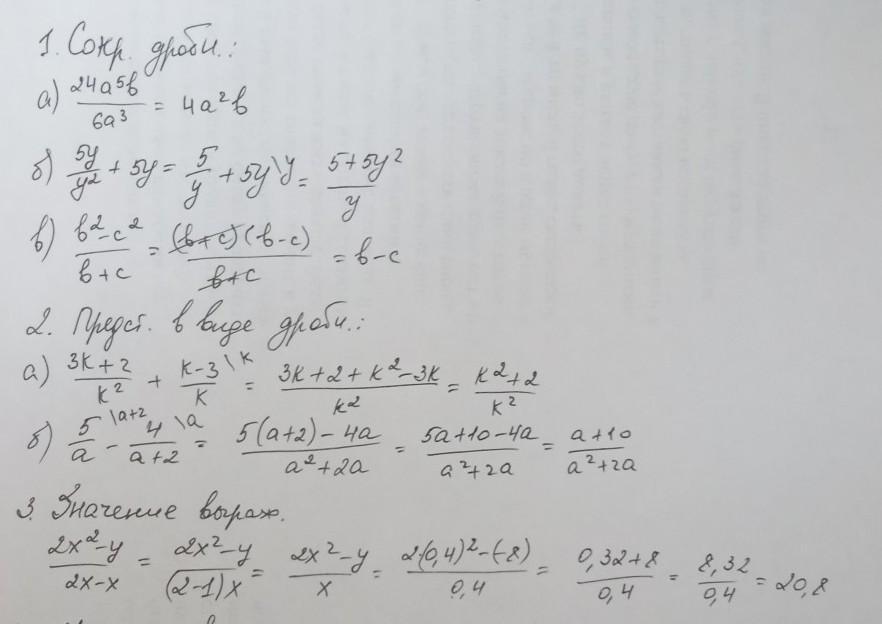 1. Сокр. дроби.:
а) 24a⁵b/6a³ = 4a²b
б) 5y/y² + 5y = 5/y + 5y\y = (5+5y²)/y
в) (b²-c²)/(b+c) = (b+c)(b-c)/(b+c) = b-c
2. Предст. в виде дроби.:
а) (3k+2)/k² + (k-3)/k \k = (3k+2+k²-3k)/k² = (k²+2)/k²
б) 5/a \a+2 - 4/(a+2) \a = (5(a+2)-4a)/(a²+2a) = (5a+10-4a)/(a²+2a) = (a+10)/(a²+2a)
3. Значение выраж.
(2x²-y)/(2x-x) = (2x²-y)/((2-1)x) = (2x²-y)/x = (2(0,4)²-(-8))/0,4 = (0,32+8)/0,4 = 8,32/0,4 = 20,8